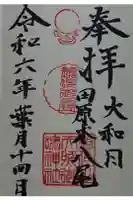 奉拝
大和国
田原本八尾
令和六年葉月十四日